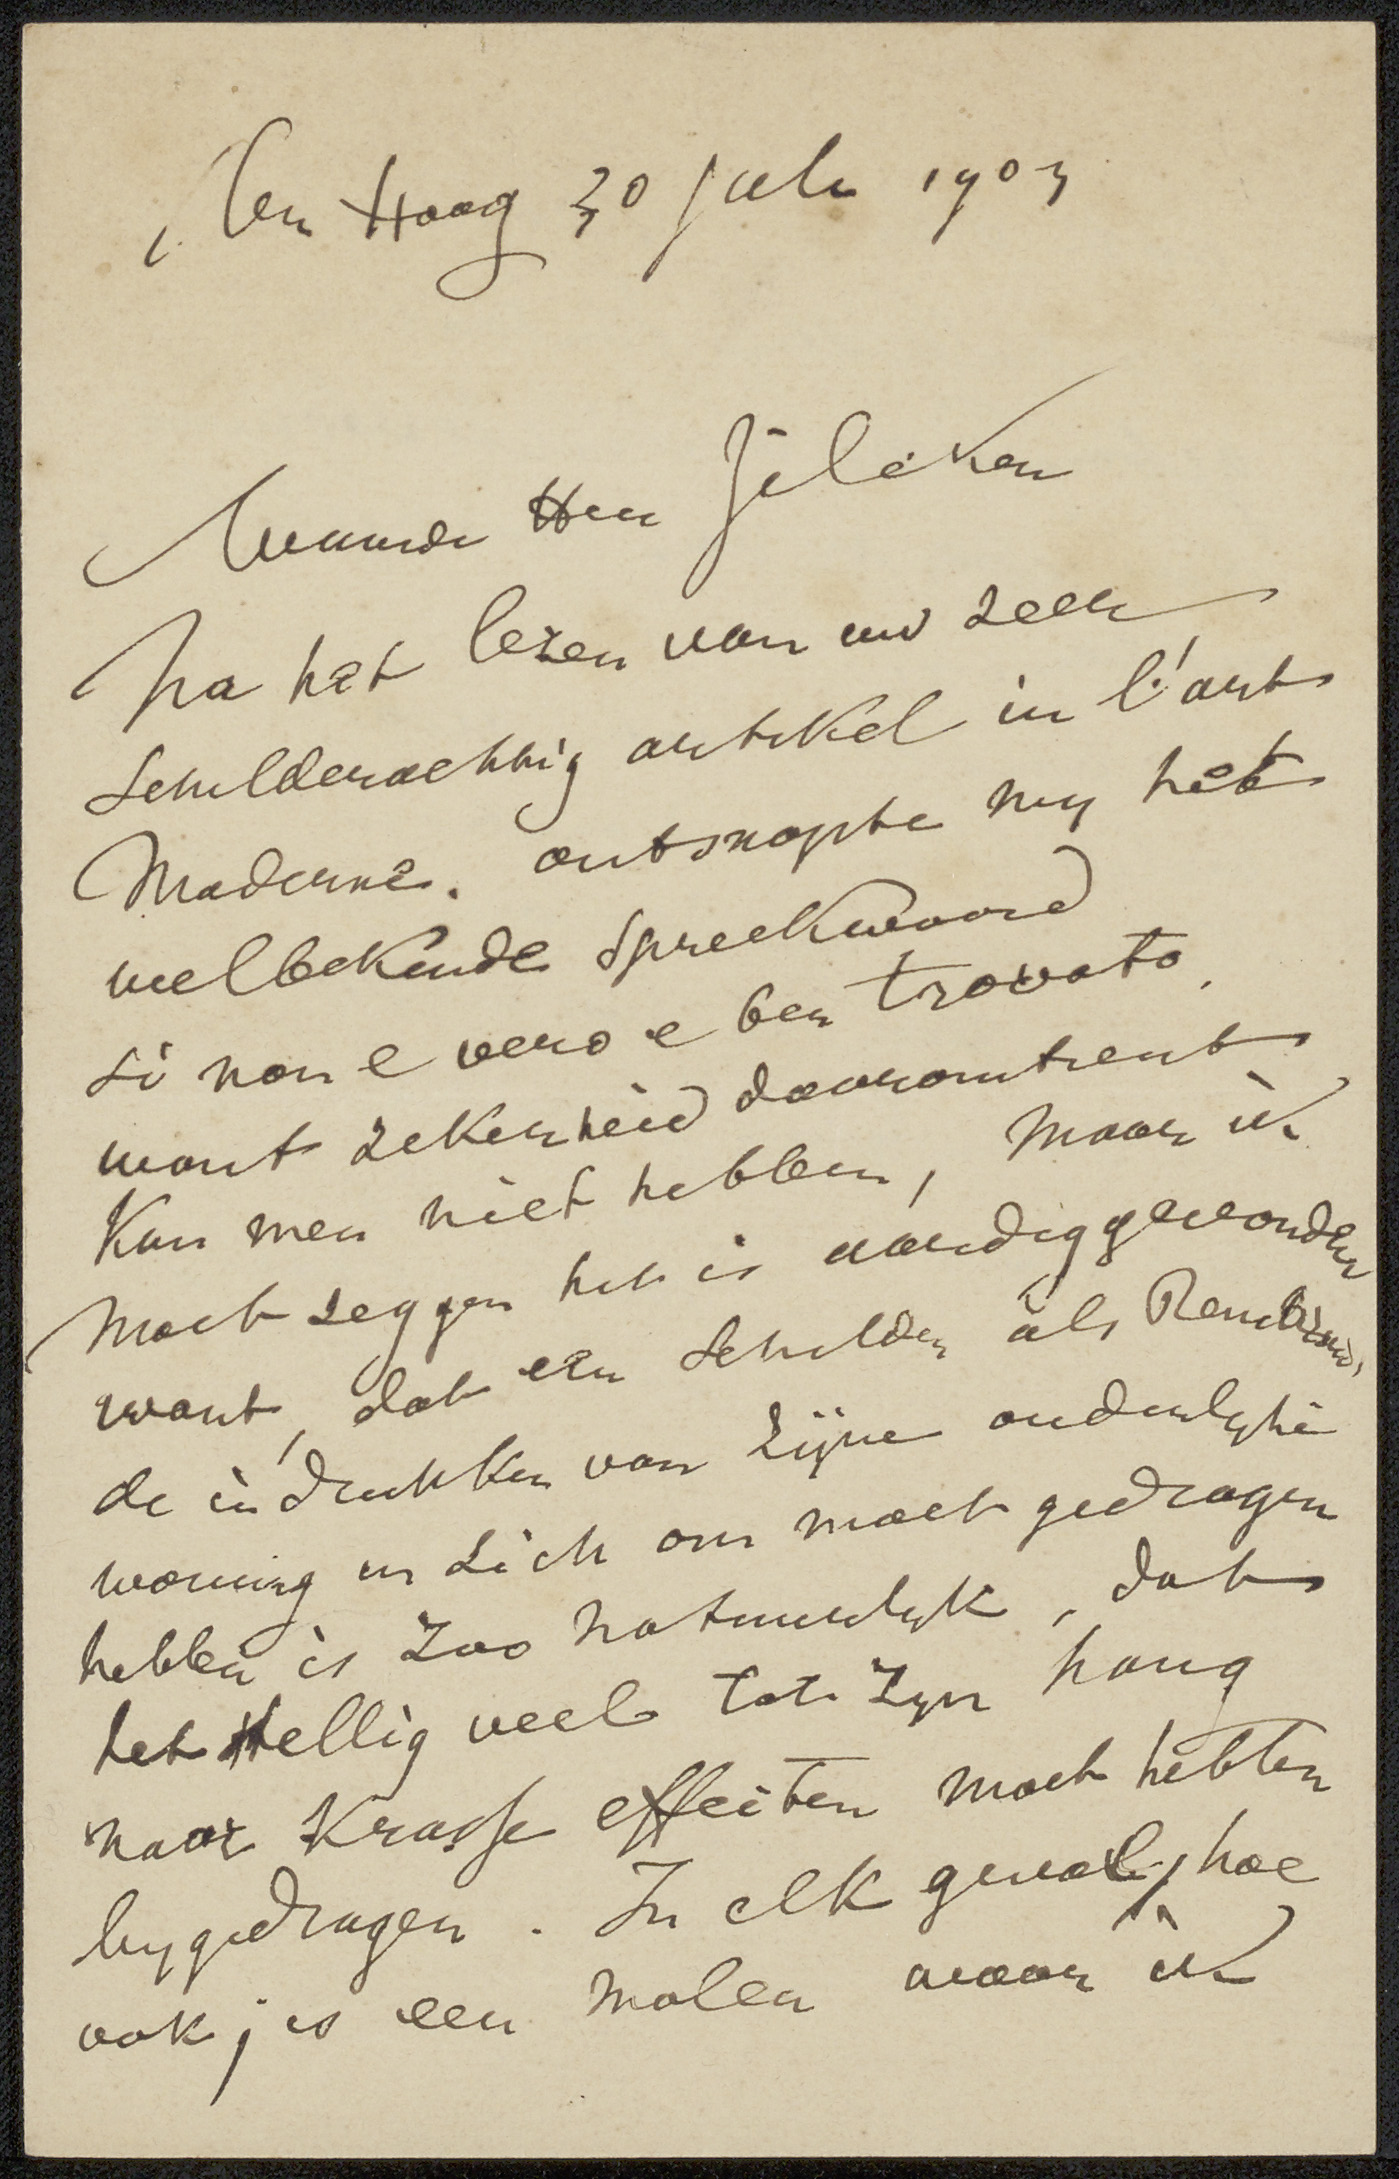 Den Haag 30 Juli 1903
Waarde Heer Zilcken
Na het lezen van uw zeer
schilderachtig artikel in l'art
Moderne. ontsnapte my het
welbekende spreekwoord
si non e vero e ben trovato,
want zekerheid daaromtrent
kan men niet hebben, maar ik
moet zeggen het is aardig gevonden
want, dat een schilder als Rembrand,
de indrukken van zijne ouderlyke
woning in zich om moet gedragen
hebben is zoo natuurlyk, dat
het stellig veel tot zyn hang
naar krasse effecten moet hebben
bygedragen. In elk geval, hoe
ook, is een molen waar ik